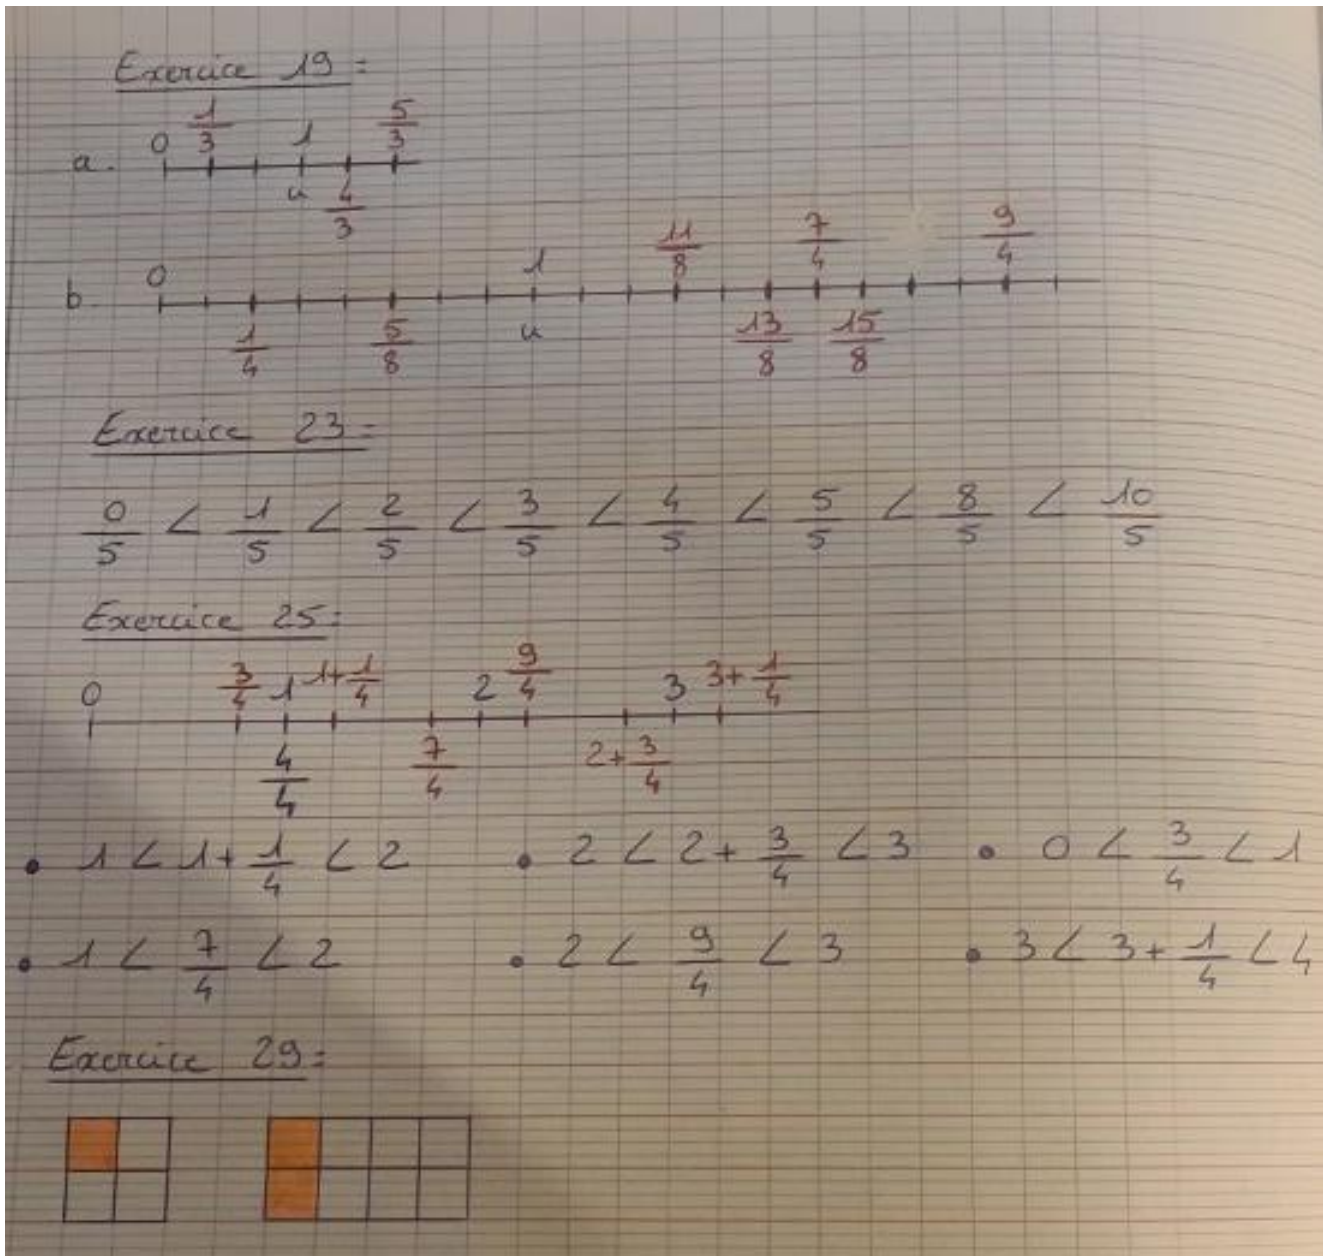 Exercice 19:
0 1/3 1 5/3
a.
u 4/3
0 1 11/8 7/4 9/4
b.
1/4 5/8 u 13/8 15/8
Exercice 23:
0/5 < 1/5 < 2/5 < 3/5 < 4/5 < 5/5 < 8/5 < 10/5
Exercice 25:
0 3/4 1 1+1/4 2 9/4 3 3+1/4
4/4 7/4 2+3/4
• 1 < 1+1/4 < 2 • 2 < 2+3/4 < 3 • 0 < 3/4 < 1
• 1 < 7/4 < 2 • 2 < 9/4 < 3 • 3 < 3+1/4 < 4
Exercice 29: